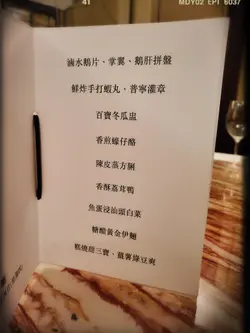 41
MDY02 EPT 6037
滷水鵝片、掌翼、鵝肝拼盤
鮮炸手打蝦丸、普寧灌章
百寶冬瓜盅
香煎蠔仔酪
陳皮蒸方脷
香酥荔茸鴨
魚蛋浸汕頭白菜
糖醋黃金伊麵
糕燒甜三寶、薑薯綠豆爽